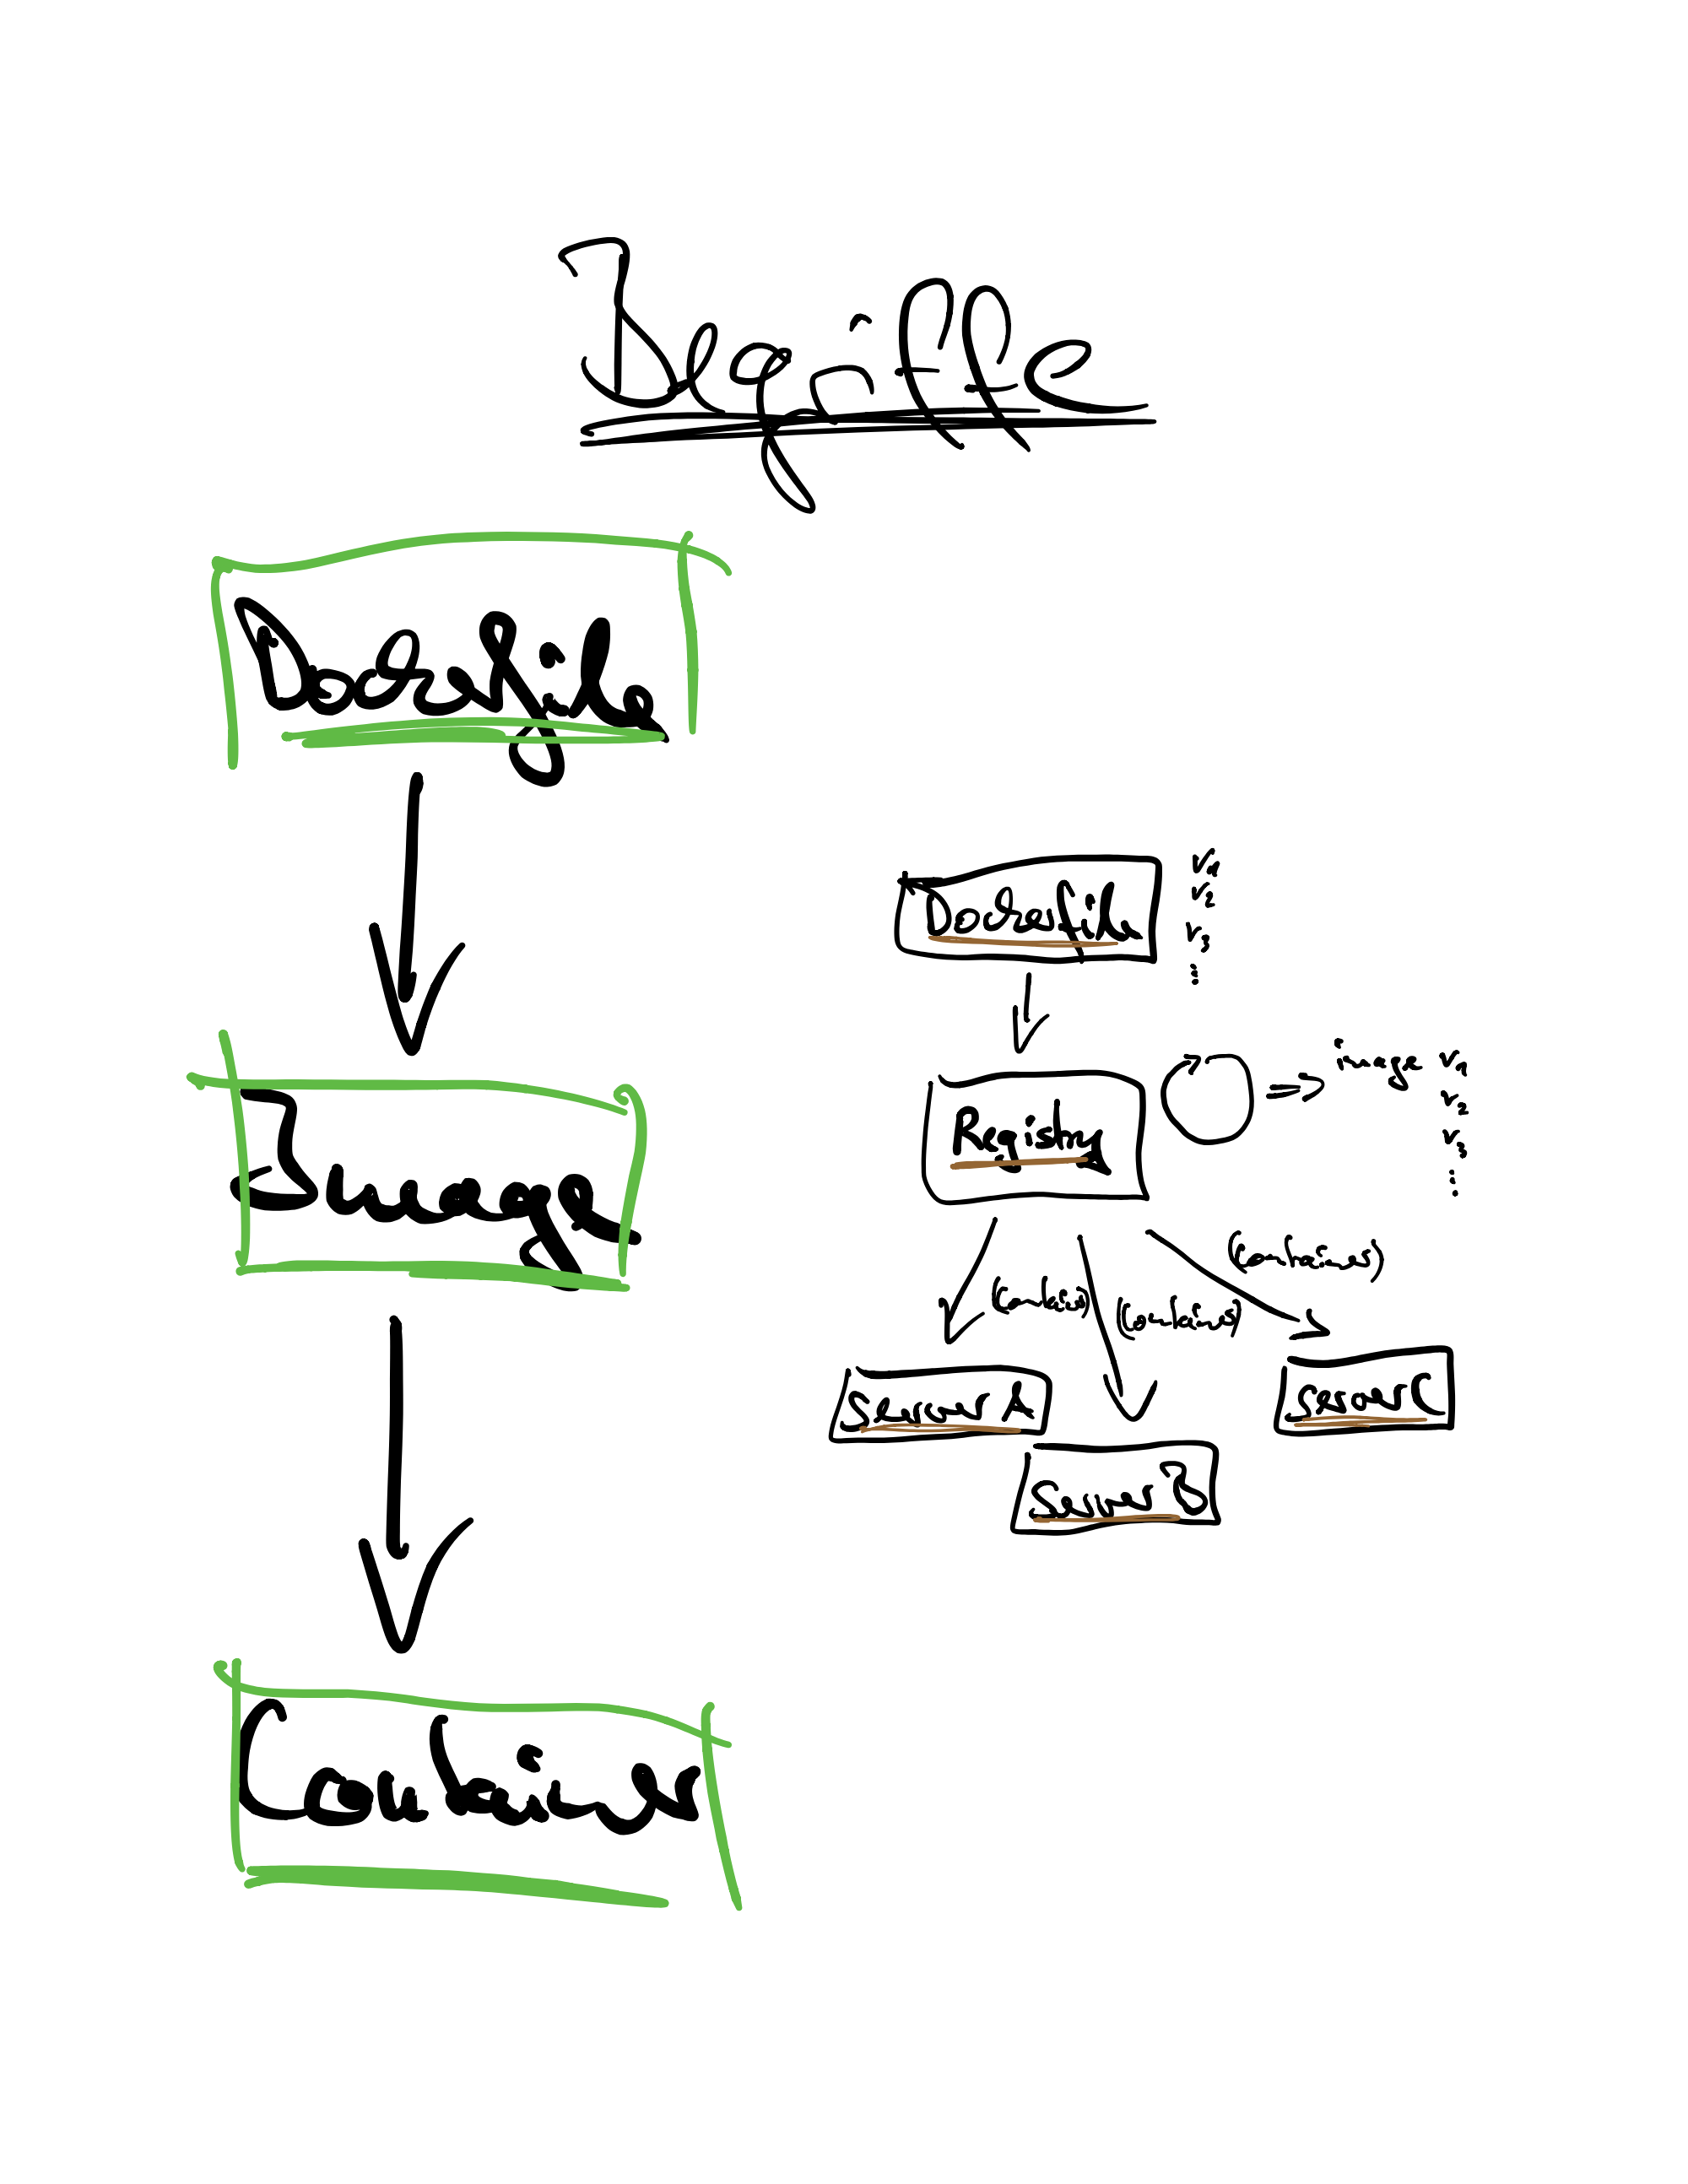 Begriffe
Dockerfile
Image
Container
Dockerfile
V1
V2
V3
⋮
Registry
⇒ image V1
V2
V3
⋮
(Container)
(Container)
(Container)
Server A
Server B
Server C